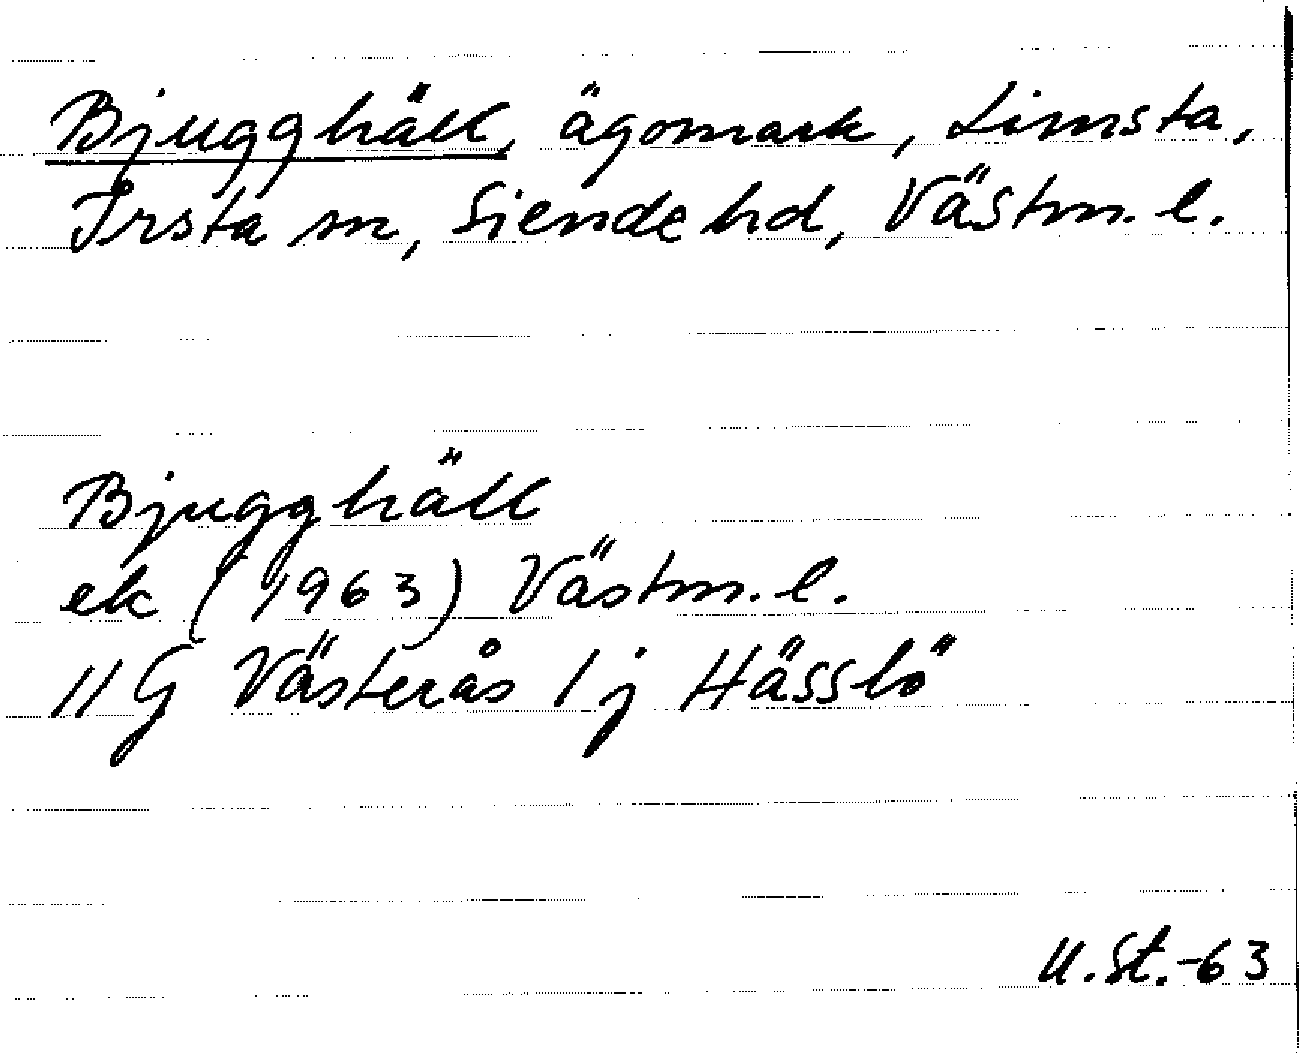 Bjugghäll, ägomark, Limsta,
Irsta sn, Siende hd, Västm. l.
Bjugghäll
ek (1963) Västm. l.
11G Västerås 1j Hässlö
U.St.-63